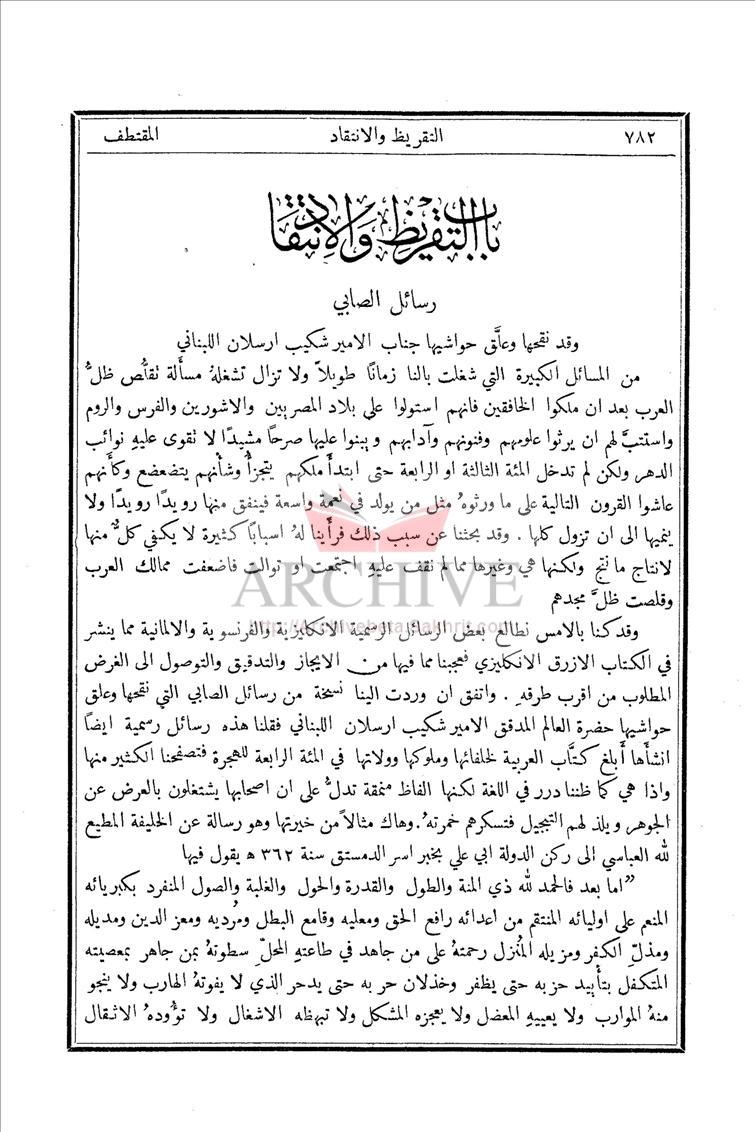 ٧٨٢ التقريظ والانتقاد المقتطف
باب التقريظ والانتقاد
رسائل الصابي
وقد نقحها وعلَّق حواشيها جناب الامير شكيب ارسلان اللبناني
من المسائل الكبيرة التي شغلت بالنا زمانًا طويلاً ولا تزال تشغلهُ مسألة نقلُّص ظلُّ
العرب بعد ان ملكوا الخافقين فانهم استولوا على بلاد المصريين والاشورين والفرس والروم
واستتبَّ لهم ان يرثوا علومهم وفنونهم وآدابهم ويبنوا عليها صرحًا مشيدًا لا تقوى عليهِ نوائب
الدهر ولكن لم تدخل المئة الثالثة او الرابعة حتى ابتدأ ملكهم يتجزأُ وشأنهم يتضعضع وكأنهم
عاشوا القرون التالية على ما ورثوهُ مثل من يولد في نعمة واسعة فينفق منها رويدًا رويدًا ولا
ينميها الى ان تزول كلها . وقد بحثنا عن سبب ذلك فرأينا لهُ اسبابًا كثيرة لا يكفي كلٌّ منها
لانتاج ما نتج ولكنها هي وغيرها مما لم نقف عليهِ اجتمعت او توالت فاضعفت ممالك العرب
وقلصت ظلَّ مجدهم
وقد كنا بالامس نطالع بعض الرسائل الرسمية الانكليزية والفرنسوية والالمانية مما ينشر
في الكتاب الازرق الانكليزي فعجبنا مما فيها من الايجاز والتدقيق والتوصول الى الغرض
المطلوب من اقرب طرقهِ . واتفق ان وردت الينا نسخة من رسائل الصابي التي نقحها وعلق
حواشيها حضرة العالم المدقق الامير شكيب ارسلان اللبناني فقلنا هذه رسائل رسمية ايضًا
انشأها أبلغ كتَّاب العربية لخلفائها وملوكها وولاتها في المئة الرابعة للهجرة فتصفحنا الكثير منها
واذا هي كما ظننا درر في اللغة لكنها الفاظ منمقة تدلُّ على ان اصحابها يشتغلون بالعرض عن
الجوهر ويلذ لهم التبجيل فتسكرهم خمرتهُ. وهاك مثالاً من خيرتها وهو رسالة عن الخليفة المطيع
لله العباسي الى ركن الدولة ابي علي بخبر اسر الدمستق سنة ٣٦٢ ه يقول فيها
"اما بعد فالحمد لله ذي المنة والطول والقدرة والحول والغلبة والصول المنفرد بكبريائه
المنعم على اوليائه المنتقم من اعدائه رافع الحق ومعليه وقامع البطل ومُرديه ومعز الدين ومديله
ومذلِّ الكفر ومزيله المُنزل رحمتهُ على من جاهد في طاعتهِ المحلِّ سطوتهُ بمن جاهر بمعصيته
المتكفل بتأييد حزبه حتى يظفر وخذلان حربه حتى يدحر الذي لا يفوتهُ الهارب ولا ينجو
منهُ الموارب ولا يعييهِ المعضل ولا يعجزه المشكل ولا تبهظه الاشغال ولا تؤودهُ الاثقال
ARCHIVE